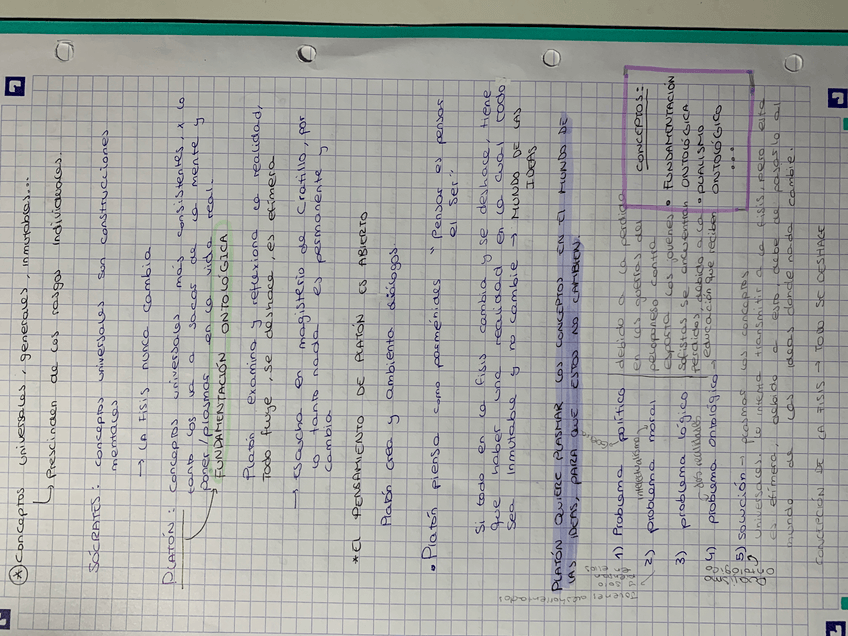 * Conceptos universales, generales, inmutables...
↳ Prescinden de los rasgos individuales.
SÓCRATES: conceptos universales son construcciones
mentales
→ LA FISIS nunca cambia
PLATÓN: conceptos universales más consistentes, x lo
tanto los va a sacar de la mente y
poner/plasmar en la vida real.
FUNDAMENTACIÓN ONTOLÓGICA
Platón examina y reflexiona la realidad,
Todo fluye, se deshace, es efímera
→ Escucha en magisterio de Cratilo, por
lo tanto nada es permanente y
cambia
* El PENSAMIENTO DE PLATÓN ES ABIERTO
Platón crea y ambienta diálogos.
• Platón piensa como parménides "Pensar es pensar
el ser."
Si todo en la fisis cambia y se deshace, tiene
que haber una realidad en la cual todo
sea inmutable y no cambie → MUNDO DE LAS
IDEAS
PLATÓN QUIERE PLASMAR LOS CONCEPTOS EN EL MUNDO DE
LAS IDEAS, PARA QUE ESTOS NO CAMBIEN.
1) Problema político
2) problema moral
3) problema lógico
4) problema ontológico →
debido a la perdida
en las guerras del
peloponeso contra
esparta
los jóvenes
sofistas se encuentran
perdidos, debido a la
educación que reciben
5) Solución → plasmar los conceptos
universales, lo intenta transmitir a la fisis, pero esta
es efímera, debido a esto, debe de pasarlo al
mundo de las ideas donde nada cambie.
CONCEPCIÓN DE LA FISIS → TODO SE DESHACE
CONCEPTOS:
• FUNDAMENTACIÓN
ONTOLÓGICA
• DUALISMO
ONTOLÓGICO
...